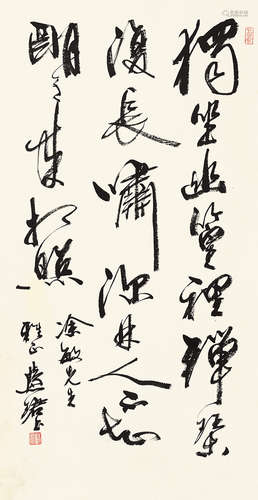 獨坐幽篁裡彈琴
復長嘯深林人不知
明月來相照
敏先生
雅正